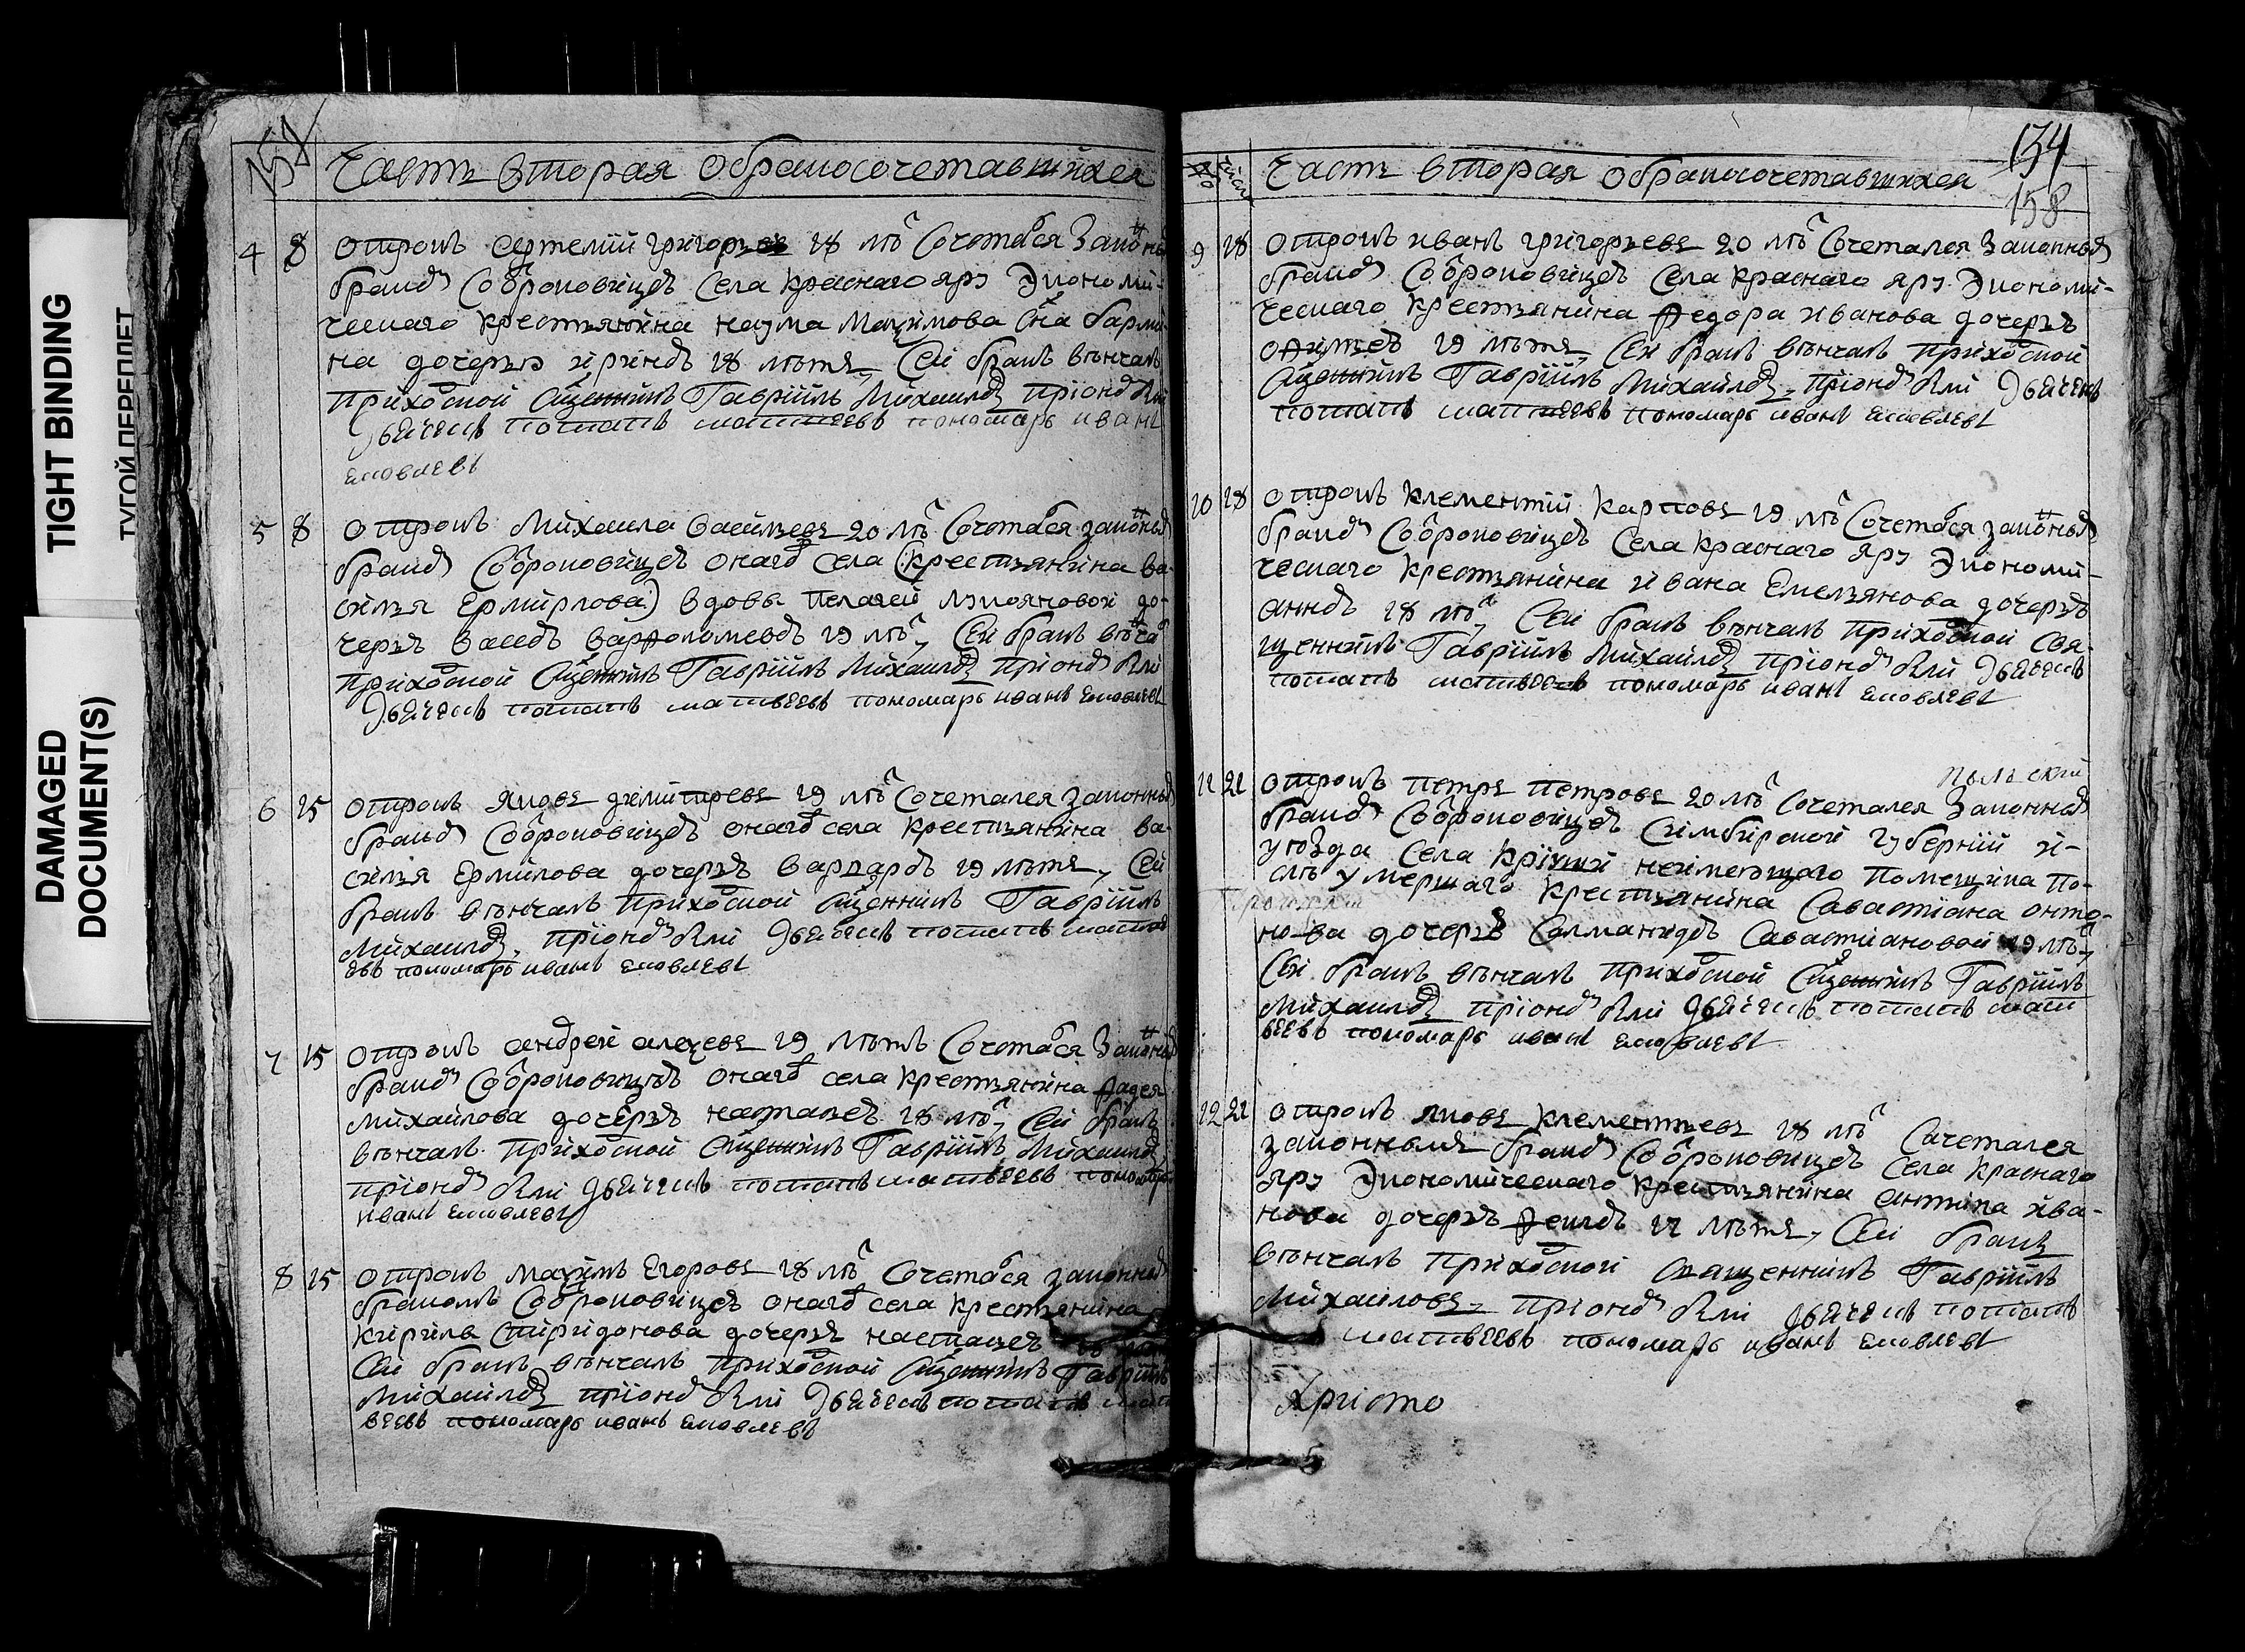 TIGHT BINDING
ТУГОЙ ПЕРЕПЛЕТ
DAMAGED
DOCUMENT(S)
Часть вторая Обракосочетавшийхся
4 8 Отрокъ григорьевъ 18 лѣтъ Сочетался Законы
бракомъ Собрковицею Села краснаго яру Экономи-
ческаго крестьянина наума Мазимова Сна
на дочерью ириною 18 лѣтъ, Сей бракъ вѣнчалъ
приходской Сщенникъ Гаврiилъ Михаиловъ приономъ были
дьячекъ потапъ матвеевъ пономарь иванъ
яковлевъ
5 8 Отрокъ Михаила васильевъ 20 лѣтъ Сочетался законнымъ
бракомъ Собрковицею онаго села (крестьянина ва-
силья Ермилова) вдовы Пелагей до-
черью 19 лѣтъ, Сей бракъ вѣнчалъ
приходской Сщенникъ Гаврiилъ Михаиловъ приономъ были
дьячекъ потапъ матвеевъ пономарь иванъ яковлевъ
6 15 Отрокъ Яковъ димитревъ 19 лѣтъ Сочетался законнымъ
бракомъ Собрковицею онаго села крестьянина ва-
силья Ермилова дочерью варварою 19 лѣтъ, Сей
бракъ вѣнчалъ приходской Сщенникъ Гаврiилъ
Михаиловъ, приономъ были дьячекъ потапъ матве
евъ пономарь иванъ яковлевъ
7 15 Отрокъ андрей алезевъ 19 лѣтъ Сочетался Законнымъ
бракомъ Собрковицею онаго села крестьянина фадея
михайлова дочерью настасею 18 лѣтъ, Сей бракъ
вѣнчалъ приходской Сщенникъ Гаврiилъ Михаиловъ
приономъ были дьячекъ потапъ матвеевъ пономарь
иванъ яковлевъ
8 15 Отрокъ мазимъ Егоровъ 18 лѣтъ Сочетался законнымъ
бракомъ Собрковицею онаго села крестьянина
кирила Спиридонова дочерью настасею
Сей бракъ вѣнчалъ приходской Сщенникъ Гаврiилъ
Михаиловъ приономъ были дьячекъ потапъ мат
веевъ пономарь иванъ яковлевъ
134
158
Часть вторая обракосочетавшихся
9 18 Отрокъ иванъ григорьевъ 20 лѣтъ Сочетался Законнымъ
бракомъ Собрковицею Села краснаго яру Экономи-
ческаго крестьянина Федора иванова дочерью
офимьею 19 лѣтъ, Сей бракъ вѣнчалъ приходской
Сщенникъ Гаврiилъ Михайловъ, приономъ были дьячекъ
потапъ матвеевъ пономарь иванъ яковлевъ
10 18 Отрокъ клементiй карповъ 19 лѣтъ Сочетался законнымъ
бракомъ Собрковицею Села краснаго яру Экономи-
ческаго крестьянина ивана Емельянова дочерью
анною 18 лѣтъ, Сей бракъ вѣнчалъ приходской Свя-
щенникъ Гаврiилъ Михайловъ приономъ были дьячекъ
потапъ матвеевъ пономарь иванъ яковлевъ
11 21 Отрокъ петръ петровъ 20 лѣтъ Сочетался Законнымъ
бракомъ Собрковицею Симбирской губернiи
уѣзда Села неимеющаго помещика по-
слѣ умершаго крестьянина Савастiана онто-
нова дочерью Саламанидою Савастiановой 19 лѣтъ,
Сей бракъ вѣнчалъ приходской Сщенникъ Гаврiилъ
Михаиловъ приономъ были дьячекъ потапъ мат
веевъ пономарь иванъ яковлевъ
12 21 Отрокъ яковъ клементьевъ 18 лѣтъ Сочетался
законнымъ бракомъ Собрковицею Села краснаго
яру Экономическаго крестьянина антипа ива-
нова дочерью Феклою 17 лѣтъ, Сей бракъ
вѣнчалъ приходской Священникъ Гаврiилъ
Михайловъ, приономъ были дьячекъ потапъ
матвеевъ пономарь иванъ яковлевъ
Христо